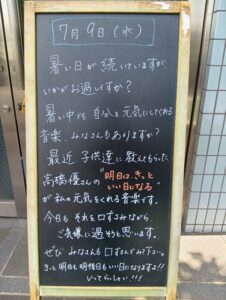 7月9日(水)
暑い日が続いていますが
いかがお過しですか?
暑い中でも自分を元気にしてくれる
音楽、みなさんもありますか?
最近、子供達に教えてもらった
高橋優さんの"明日は、きっと
いい日になる"
が私の元気をくれる音楽です。
今日もそれを口ずさみながら、
ご機嫌に過そうと思います。
ぜひみなさんも口ずさんでみて下さい。
きっと明日も明後日もいい日になりますよ!!
いってらっしゃい!!!